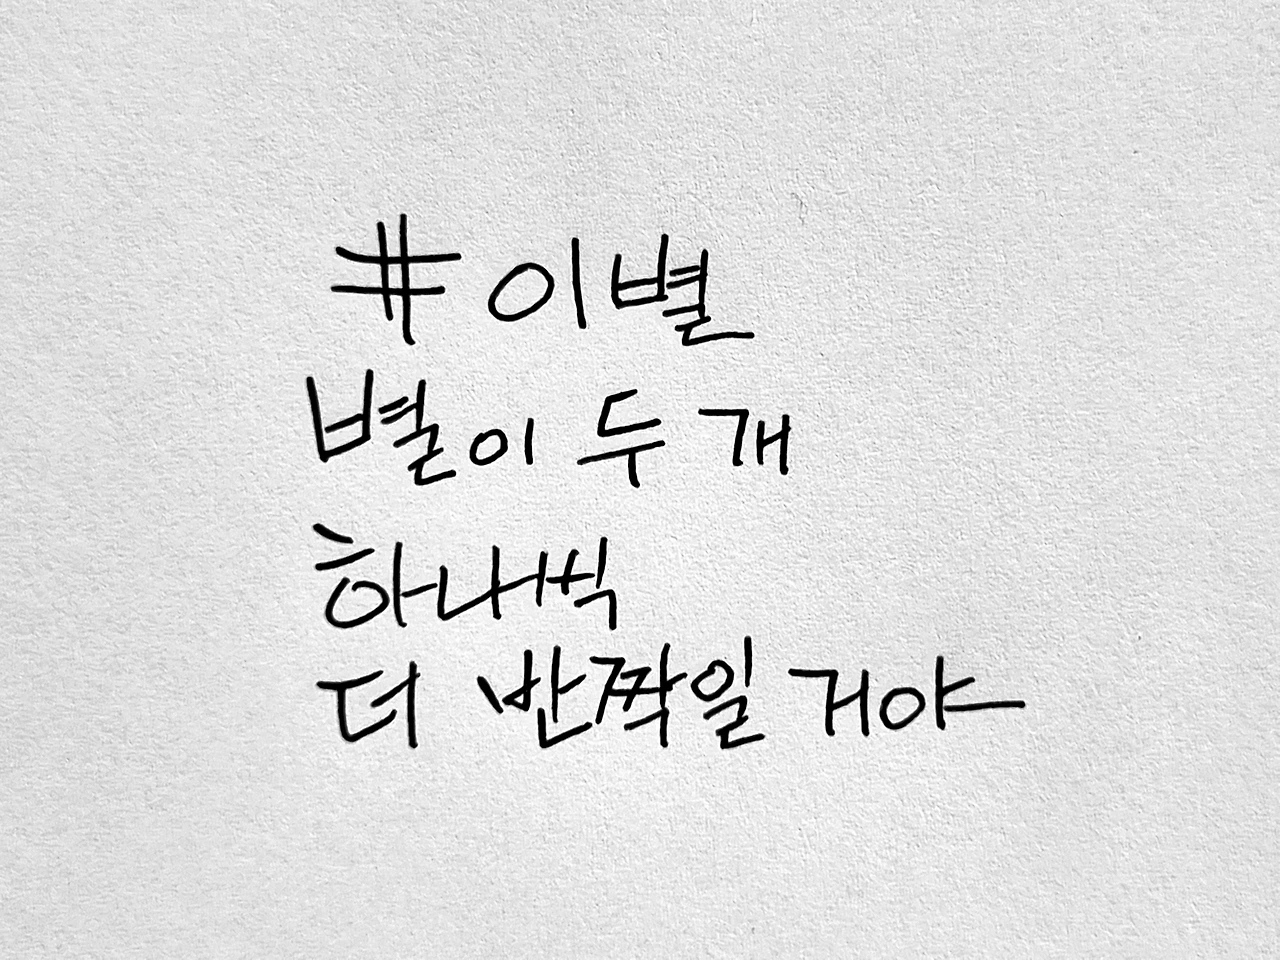 # 이별
별이 두 개
하나씩
더 반짝일 거야